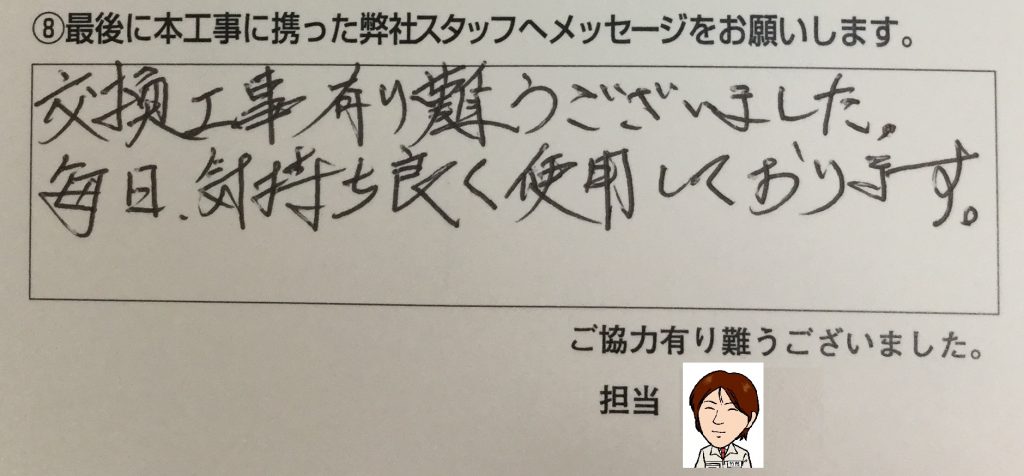 ⑧最後に本工事に携った弊社スタッフへメッセージをお願いします。
交換工事有り難うございました。
毎日、気持ち良く使用しております。
ご協力有り難うございました。
担当